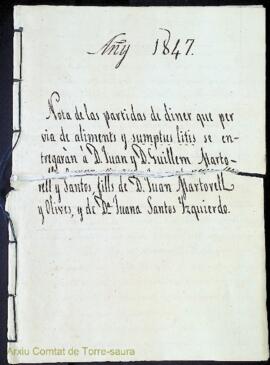 Añy 1847.
Nota de las partidas de diner que per
via de aliments y sumptus litis se en-
tregarán á D. Juan y D. Guillem Marto-
rell y Santos, fills de D. Juan Martorell
y Olives, y de Dª. Juana Santos Yzquierdo.
Arxiu Comtat de Torre-saura